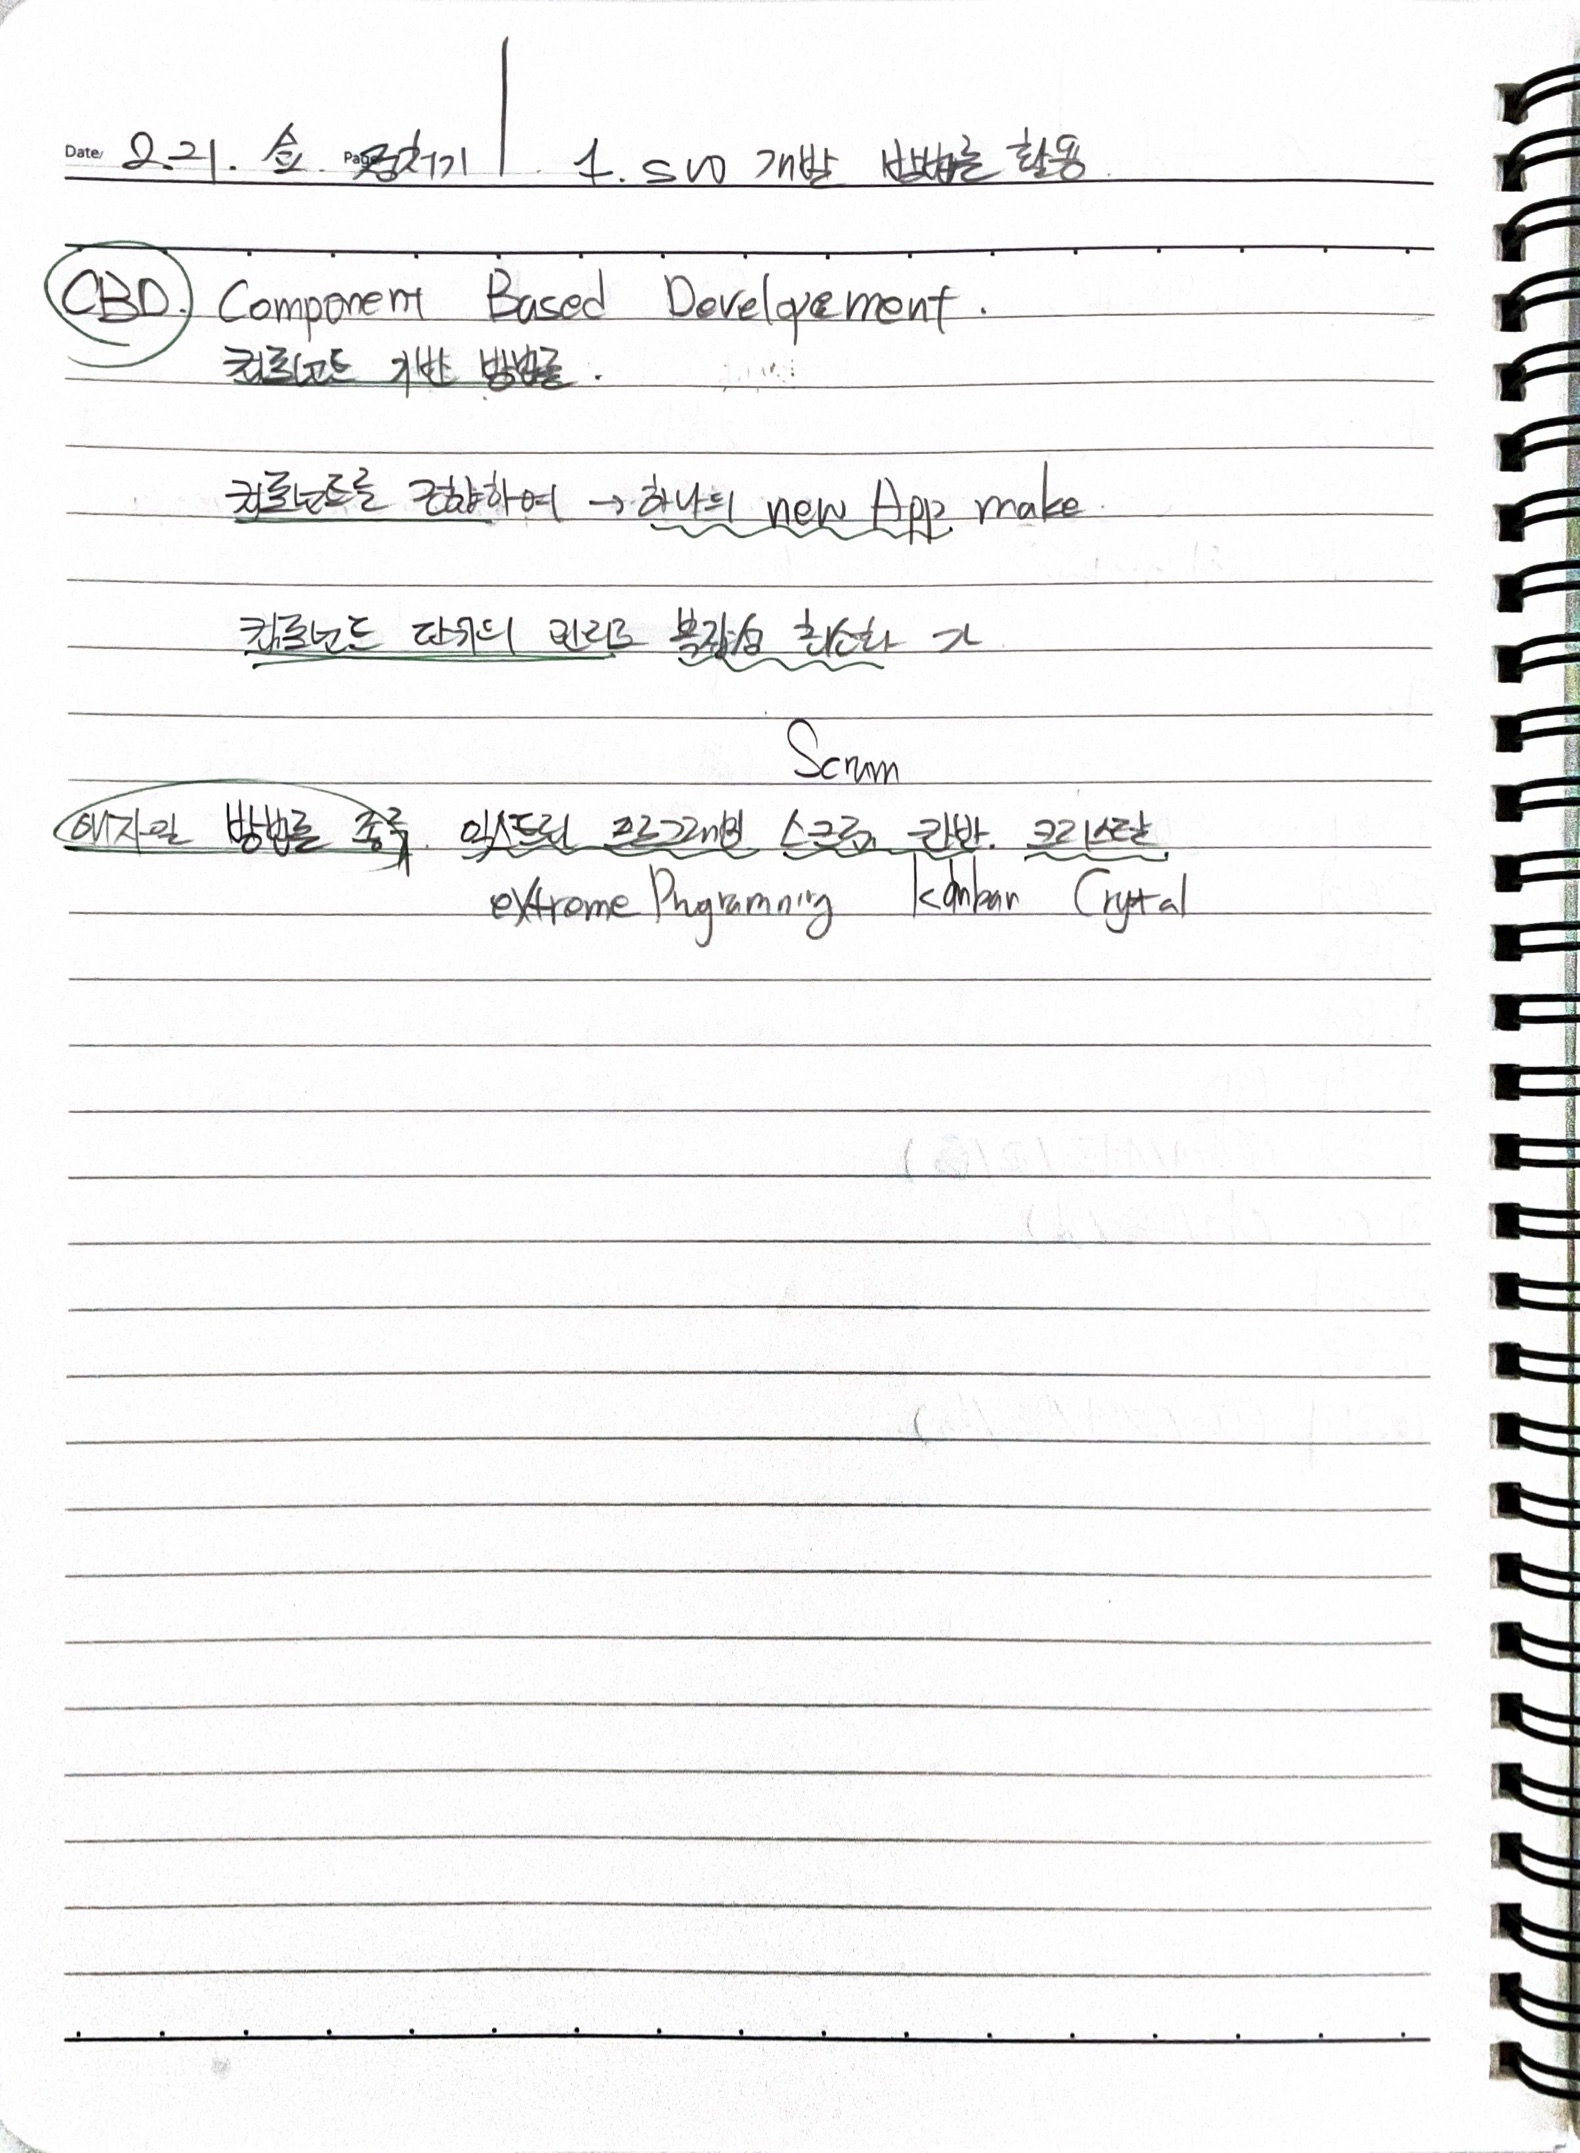 Date/ 2.21. 금. Page 정처기 | 1. SW 개발 방법론 활용
CBD. Component Based Development.
컴포넌트 기반 방법론.
컴포넌트를 조합하여 → 하나의 new App make
컴포넌트 단위의 관리로 복잡성 최소화 가
Scrum
애자일 방법론 종류. 익스트림 프로그래밍 스크럼, 칸반. 크리스탈
extreme Programming kanban Crystal